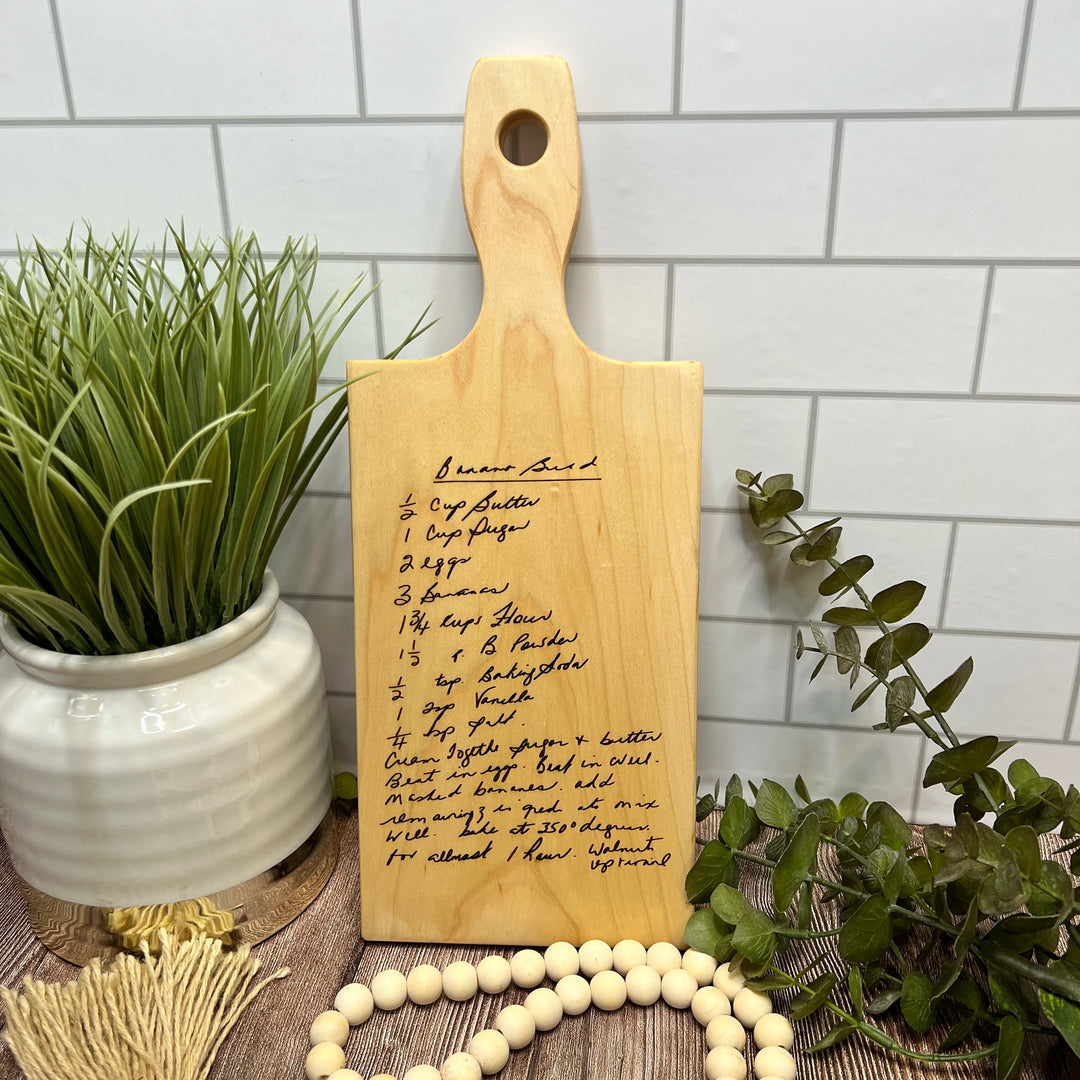 Banana Bread
1/2 Cup Butter
1 Cup Sugar
2 eggs
3 Bananas
1 3/4 Cups Flour
1 1/2 t. B Powder
1/2 tsp. Baking Soda
1 tsp Vanilla
1/4 tsp Salt.
Cream Togethe Sugar & butter
Beat in eggs. Beat in well.
Mashed bananas. add
remaining ingred ats mix
well. bake at 350° degrees.
for allmost 1 hour. Walnuts
optional